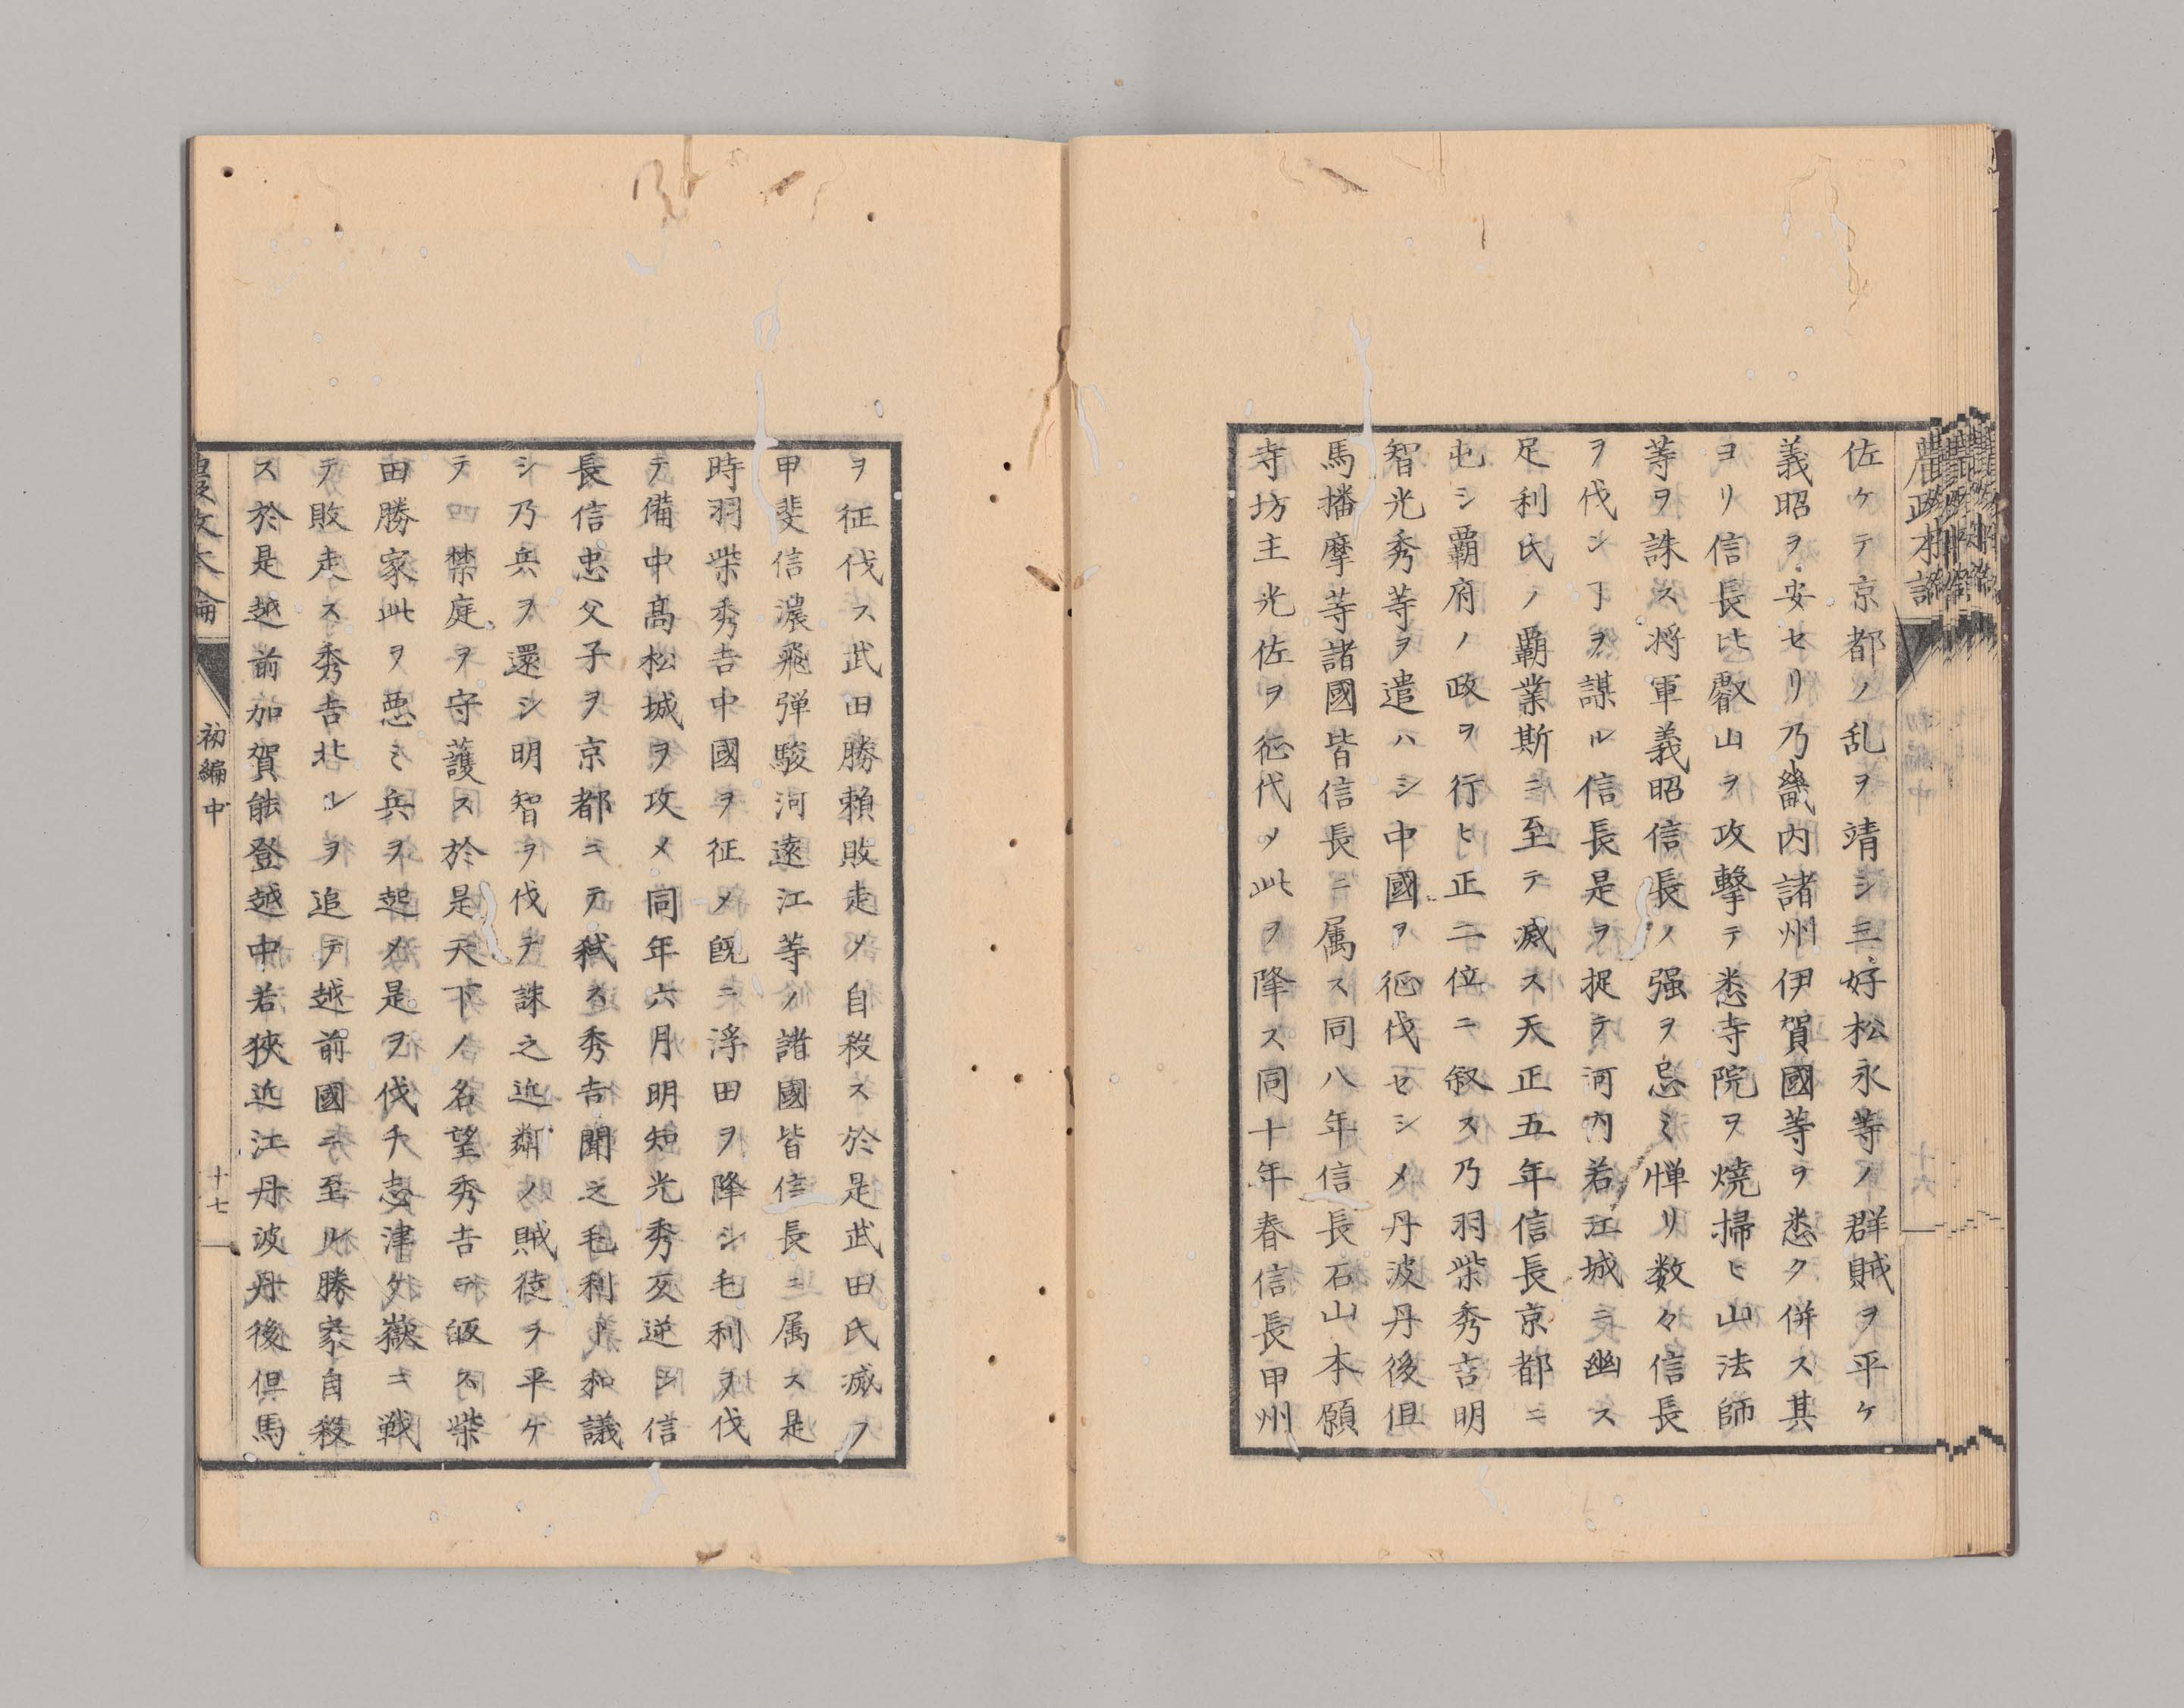 佐ケテ京都ノ乱ヲ靖シ三好松永等ノ群賊ヲ平ケ
義昭ヲ安セリ乃畿内諸州伊賀國等ヲ悉ク併ス其
ヨリ信長比叡山ヲ攻撃テ悉寺院ヲ焼掃ヒ山法師
等ヲ誅ス将軍義昭信長ノ强ヲ忌ミ憚リ数々信長
ヲ伐ンヿヲ謀ル信長是ヲ捉テ河内若江城ニ幽ス
足利氏ノ覇業斯ニ至テ滅ス天正五年信長京都ニ
屯シ覇府ノ政ヲ行ヒ正二位ニ叙ス乃羽柴秀吉明
智光秀等ヲ遣ハシ中國ヲ征伐セシメ丹波丹後但
馬播摩等諸國皆信長ニ属ス同八年信長石山本願
寺坊主光佐ヲ征代メ此ヲ降ス同十年春信長甲州
ヲ征伐ス武田勝賴敗走ノ自殺ス於是武田氏滅ヲ
甲斐信濃飛弾駿河遠江等ノ諸國皆信長ニ属ス是
時羽柴秀吉中國ヲ征メ既ニ浮田ヲ降シ毛利ヲ伐
テ備中髙松城ヲ攻メ同年六月明知光秀叐逆シ信
長信忠父子ヲ京都ニテ弑ス秀吉聞之毛利ト和議
シ乃兵ヲ還シ明智ヲ伐テ誅之近鄰ノ賊徒ヲ平ケ
テ禁庭ヲ守護ス於是天下ノ名望秀吉ニ皈ス柴
田勝家此ヲ悪ミ兵ヲ起メ是ヲ伐チ志津ケ嶽ニ戦
テ敗走ス秀吉北ルヲ追テ越前國ニ至ル勝家自殺
ス於是越前加賀能登越中若狹近江丹波丹後但馬
初編中
十七